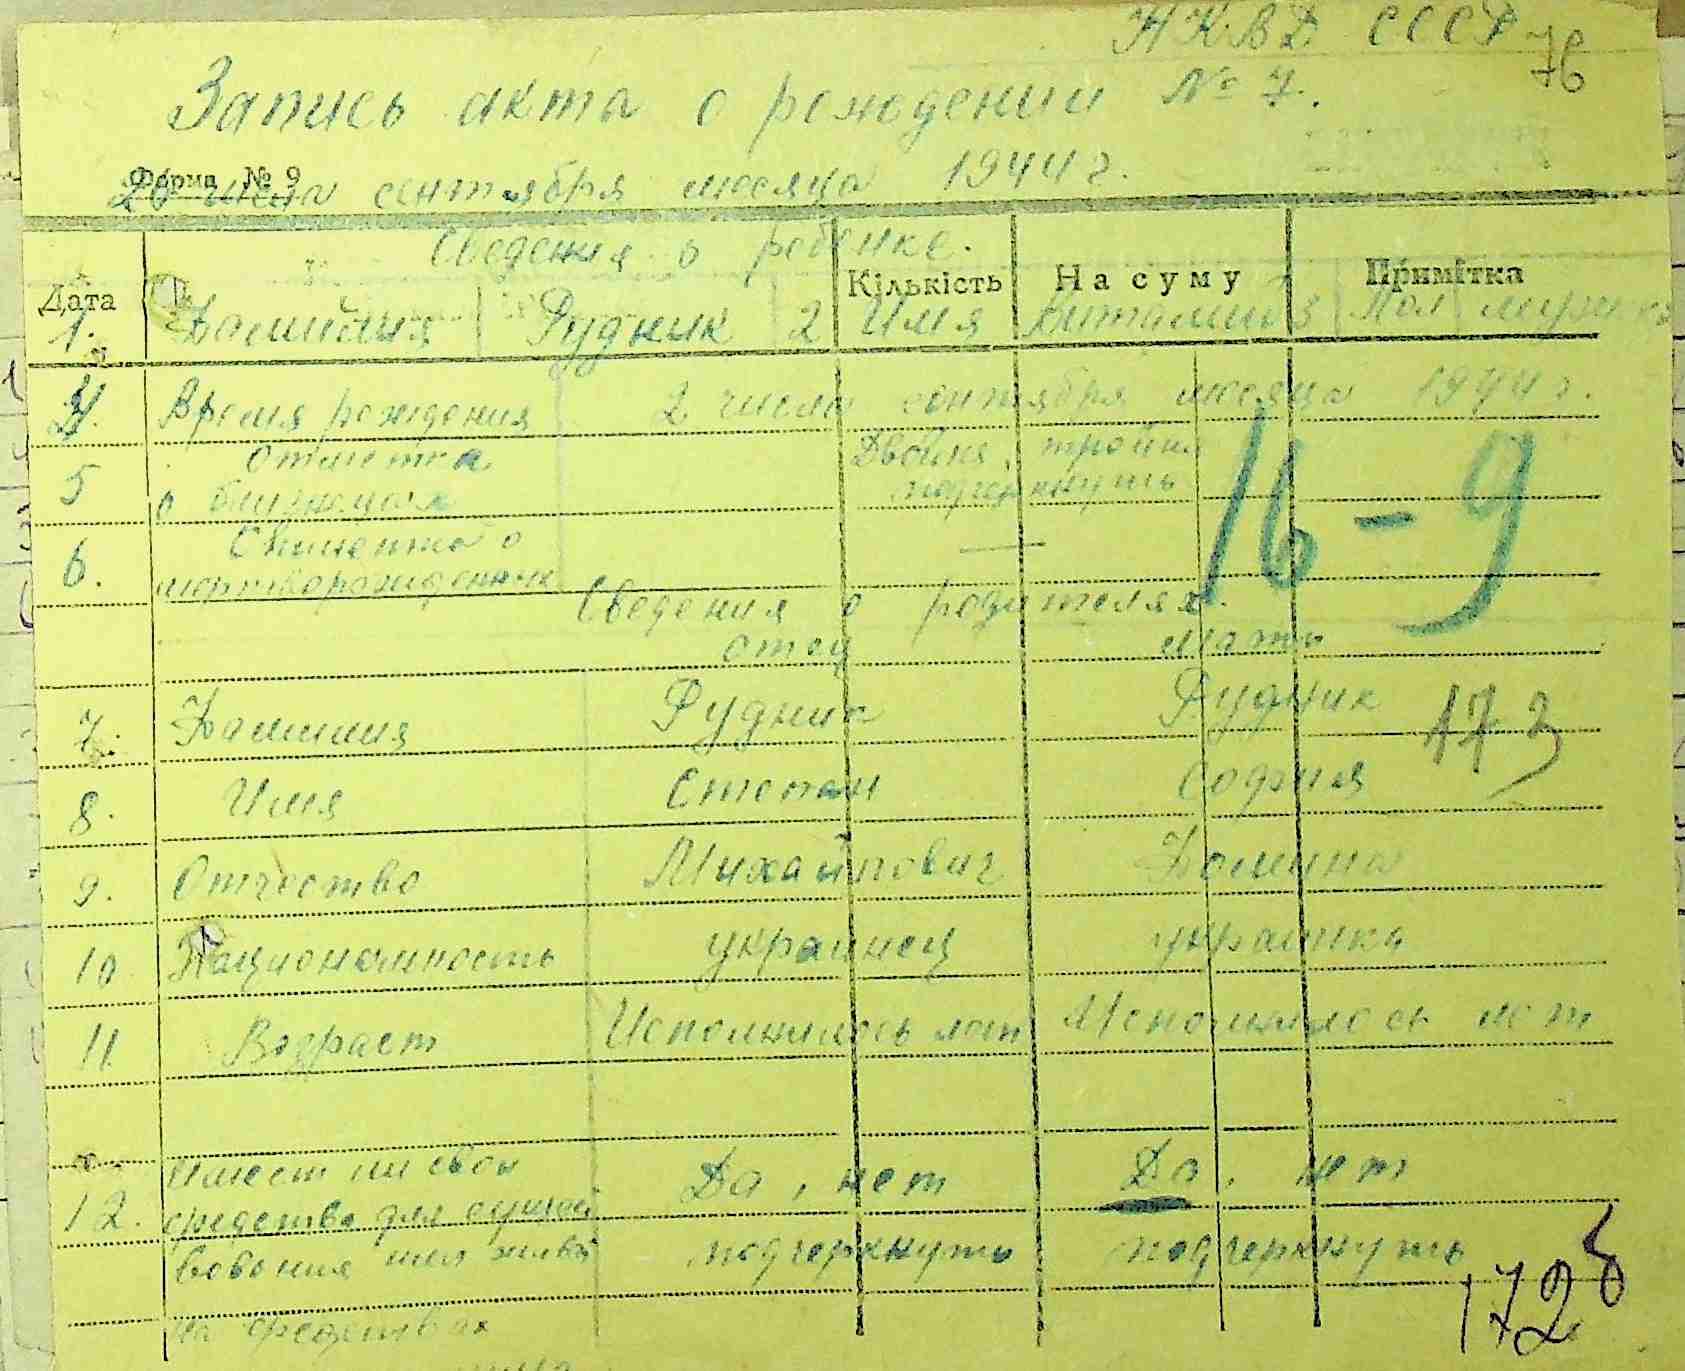 НКВД СССР
76
Запись акта о рождении № 7.
Форма № 9
20 числа сентября месяца 1944 г.
Сведения о ребенке.
Дата Кількість На суму Примітка
1. Фамилия Рудник 2 Имя 3 Пол
4. Время рождения 2 числа сентября месяца 1944 г.
5 Отметка Двойня, тройня
о близнецах подчеркнуть
16-9
6. Отметка о —
мертворожденных
Сведения о родителях.
отец мать
7. Фамилия Рудник Рудник
173
8. Имя Степан София
9. Отчество Михайлович Фомина
10 Национальность украинец украинка
11 Возраст Исполнилось лет Исполнилось лет
Имеет ли свои Да, нет Да, нет
12. средства для сущест
вования или живет подчеркнуть подчеркнуть
1728
на средствах